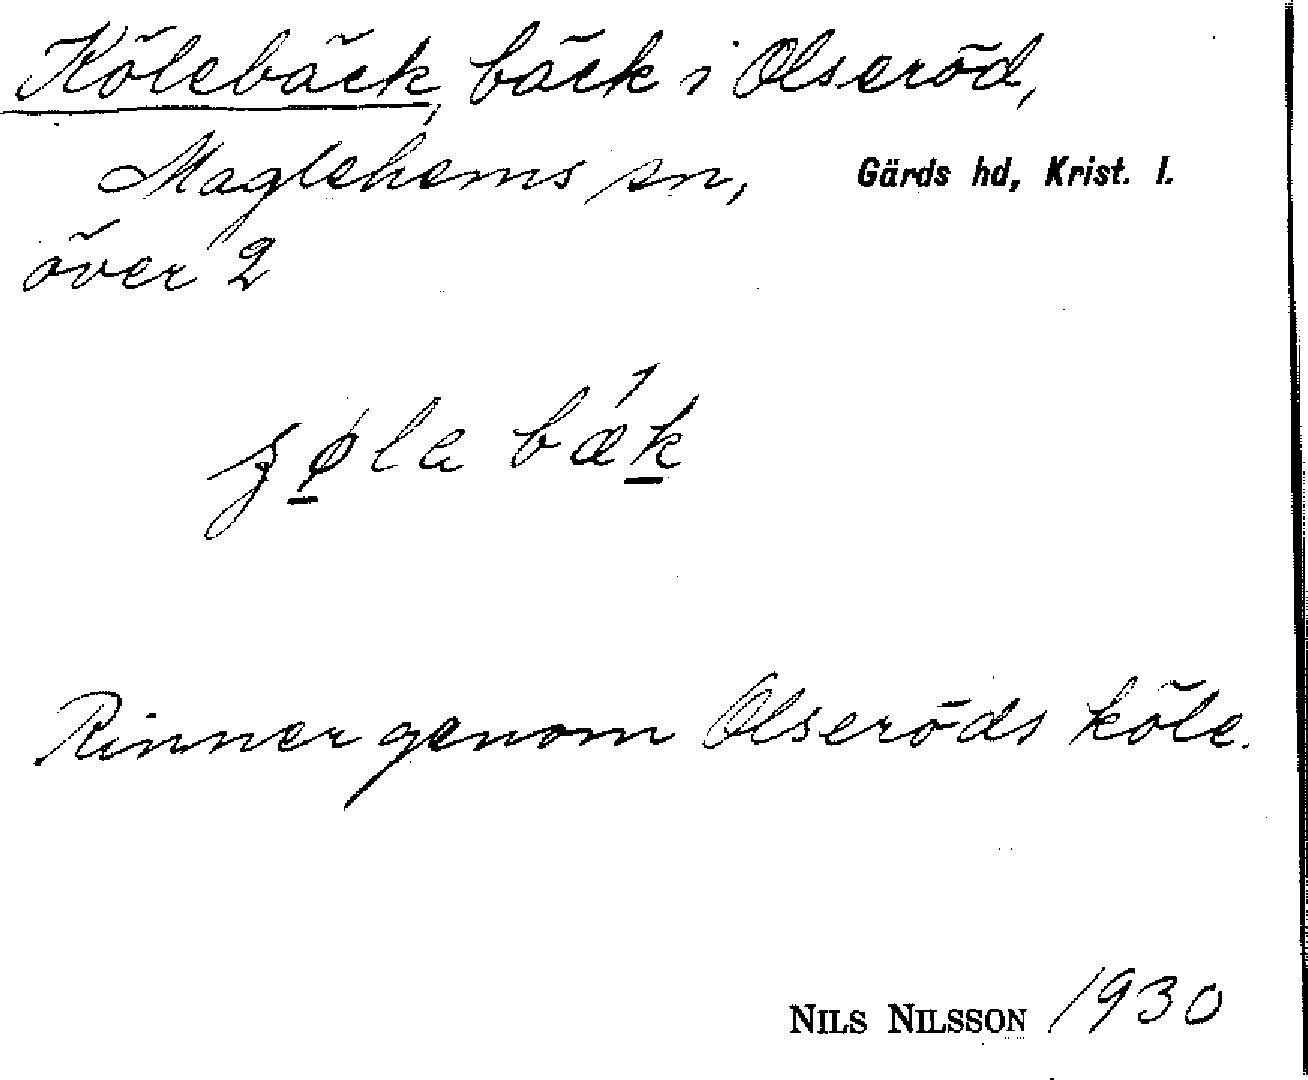 Kölebäck, bäck i Olseröd,
Maglehems sn, Gärds hd, Krist. l.
över 2
Rinner genom Olseröds köle.
NILS NILSSON 1930